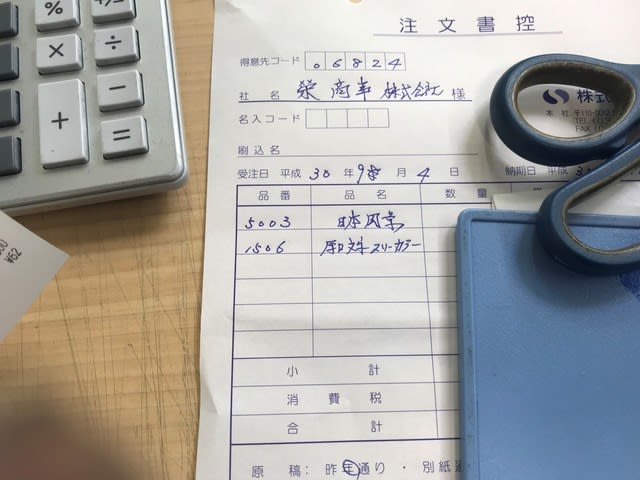 注文書控
得意先コード 06824
社名 榮商事株式会社 様
名入コード
刷込名
受注日 平成 30 年 9 月 4 日 納期日 平成
品番 品名 数量
5003 日本風景
1506 厚口文字スリーカラー
小計
消費税
合計
原稿: 昨年通り ・ 別紙
株式
本社 〒110-
TEL (03
FAX (
% +/-
× ÷
+ −
=
¥62